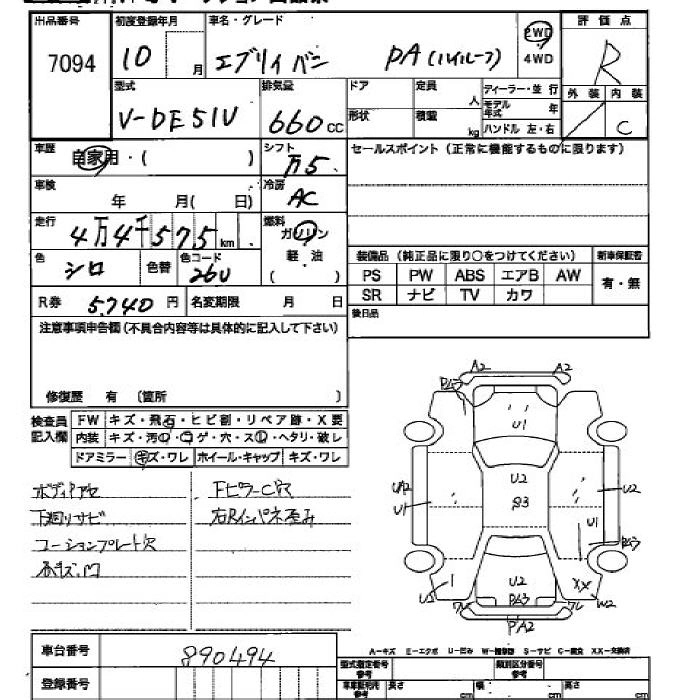 出品番号 初度登録年月 車名・グレード 評価点
7094 10 月 エブリイバン PA(ハイルーフ) 2WD 4WD R
型式 排気量 ドア 定員 人 ディーラー・並行 外装 内装
V-DE51V 660cc 形状 積載 kg モデル年式 年 ハンドル 左・右 C
車歴 自家用・( ) シフト 万5. セールスポイント(正常に機能するものに限ります)
車検 年 月( 日) 冷房 AC
走行 4万4千575km 燃料 ガソリン 軽・油 ( )
色 シロ 色替 色コード 26U
装備品(純正品に限り○をつけてください) 新車保証書
PS PW ABS エアB AW 有・無
SR ナビ TV カワ
R券 5,740円 名変期限 月 日
後日品
注意事項申告欄(不具合内容等は具体的に記入して下さい)
修復歴 有 〔箇所 〕
検査員記入欄 FW キズ・飛石・ヒビ割・リペア跡・X要
内装 キズ・汚・コゲ・穴・スレ・ヘタリ・破レ
ドアミラー キズ・ワレ ホイール・キャップ キズ・ワレ
下廻りサビ 右Rインパネ歪み
コーションプレート穴
A2 A2
U1
U2
U2
U1
U1
U2
XX
W2
U2
PA2
車台番号 890494
登録番号
A-キズ E-エクボ U-凹み W-補修跡 S-サビ C-腐食 XX-交換済
型式指定番号 参考 類別区分番号 参考
長さ cm 幅 cm 高さ cm